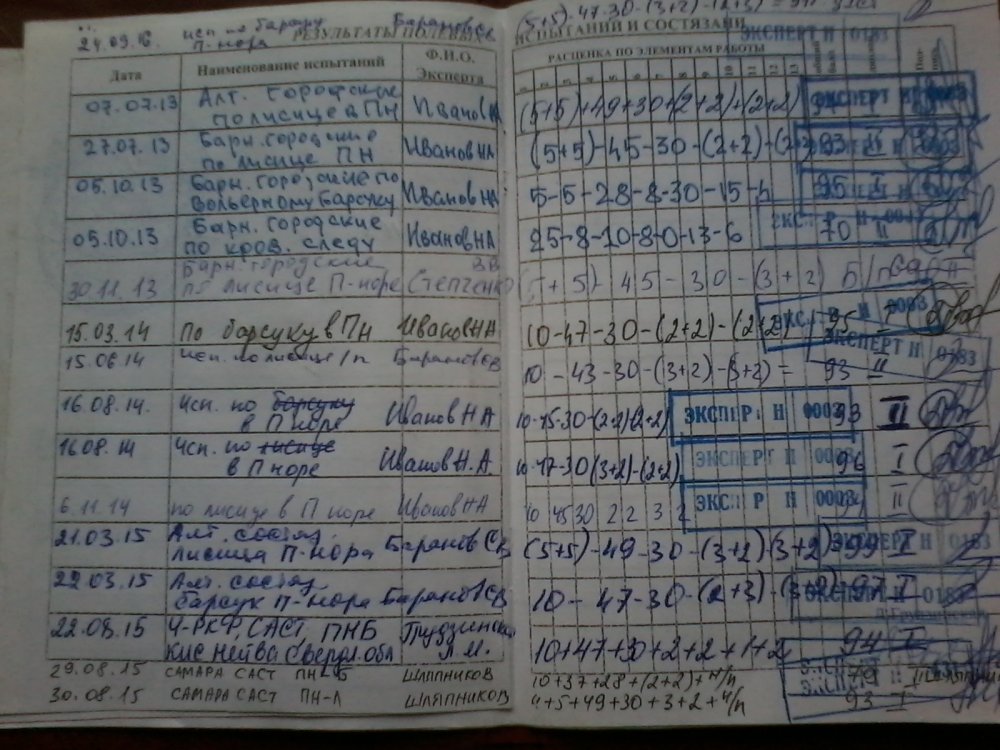 24.09.16. исп по барсуку Баранов Св
П-нора
РЕЗУЛЬТАТЫ ПОЛЕВЫХ
ИСПЫТАНИЙ И СОСТЯЗАНИ
(5+5)-47-30-(3+2)-(2+3)=
Дата Наименование испытаний Ф.И.О. Эксперта
РАСЦЕНКА ПО ЭЛЕМЕНТАМ РАБОТЫ
07.07.13 Алт. городские Иванов НА (5+5)+49+30+(2+2)+(2+2)
по лисице в ПН
27.07.13 Барн. городские Иванов НА (5+5)-45-30-(2+2)-(2+2) 93 II
по лисице ПН
05.10.13 Барн. городские по Иванов НА 5-5-28-8-30-15-4 95 I
вольерному барсуку
05.10.13 Барн. городские Иванов НА 25-8-10-8-0-13-6 70 II
по кров. следу
30.11.13 Барн. городские Степченко ВВ (5+5) 45-30-(3+2) Б/п
по лисице П-норе
15.03.14 По барсуку в ПН Иванов НА 10-47-30-(2+2)-(2+2) 95 I
15.06.14 исп. по лисице /п Баранов СВ 10-43-30-(3+2)-(3+2)= 93 II
16.08.14. Исп. по барсуку Иванов НА 10-45-30-(2+2)(2+2) 93 II
в П норе
16.08.14 Исп. по лисице Иванов Н.А. 10-47-30(3+2)-(2+2) 96 I
в П норе
6.11.14 по лисице в П норе Иванов НА 10 45 30 2 2 3 2 II
21.03.15 Алт. состяз. Баранов СВ (5+5)-49-30-(3+2)(3+2) 99 I
лисица П-нора
22.03.15 Алт. состяз Баранов СВ 10-47-30-(2+3)-(3+2) 97 I
барсук П-нора
22.08.15 Ч-РКФ, САСТ, ПНБ 10+47+30+2+2+1+2 94 I
29.08.15 САМАРА САСТ ПН-Б ШЛЯПНИКОВ 10+37+28+(2+2)+Н/п 79
30.08.15 САМАРА САСТ ПН-Л ШЛЯПНИКОВ 4+5+49+30+3+2+Н/п 93 I
ЭКСПЕРТ Н 0183
ЭКСПЕРТ Н 0003